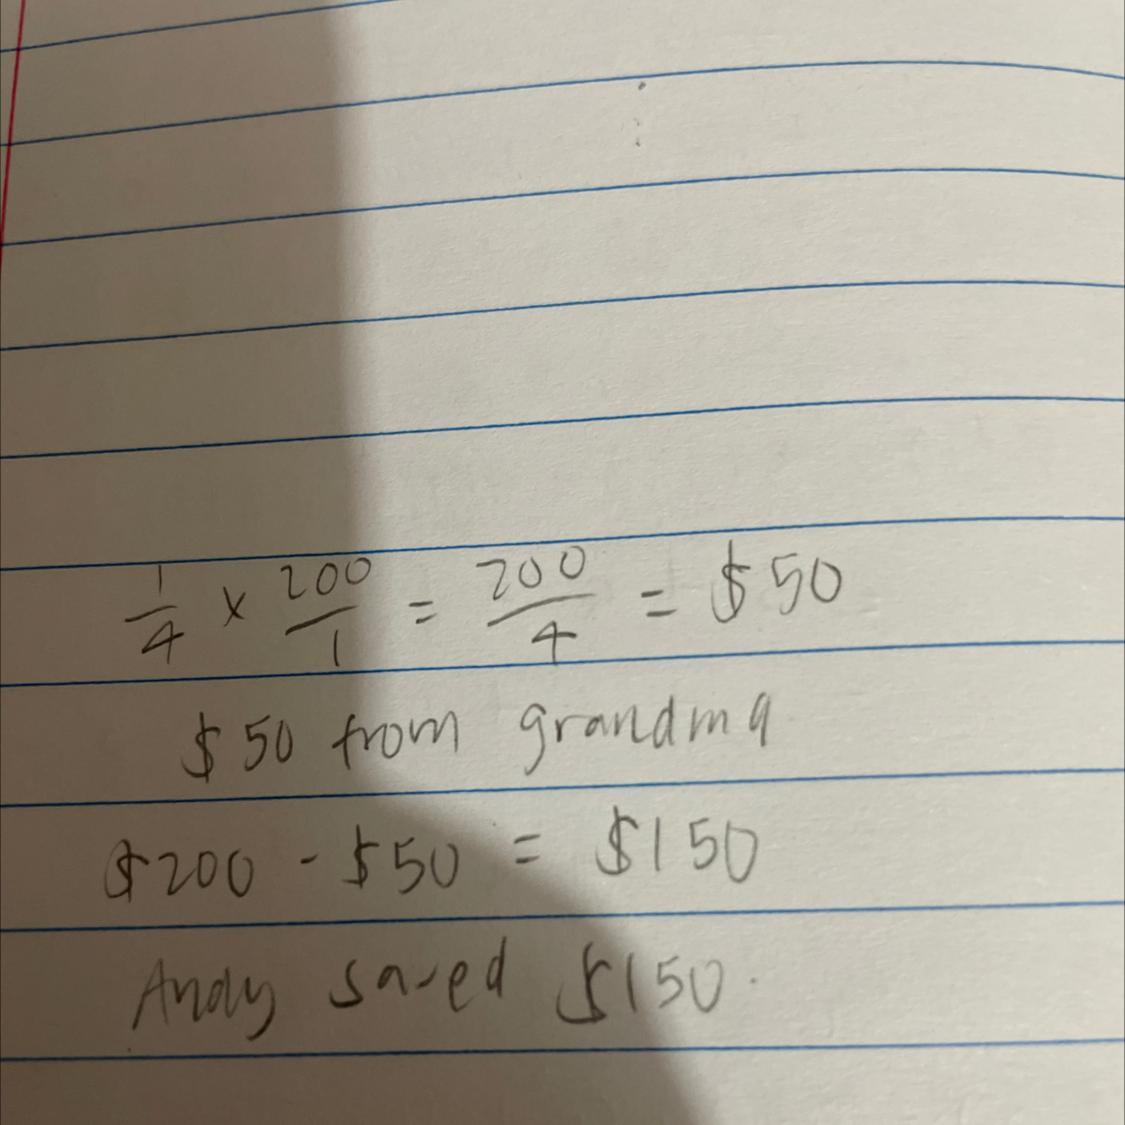 1/4 × 200/1 = 200/4 = $50
$50 from grandma
$200 - $50 = $150
Andy saved $150.